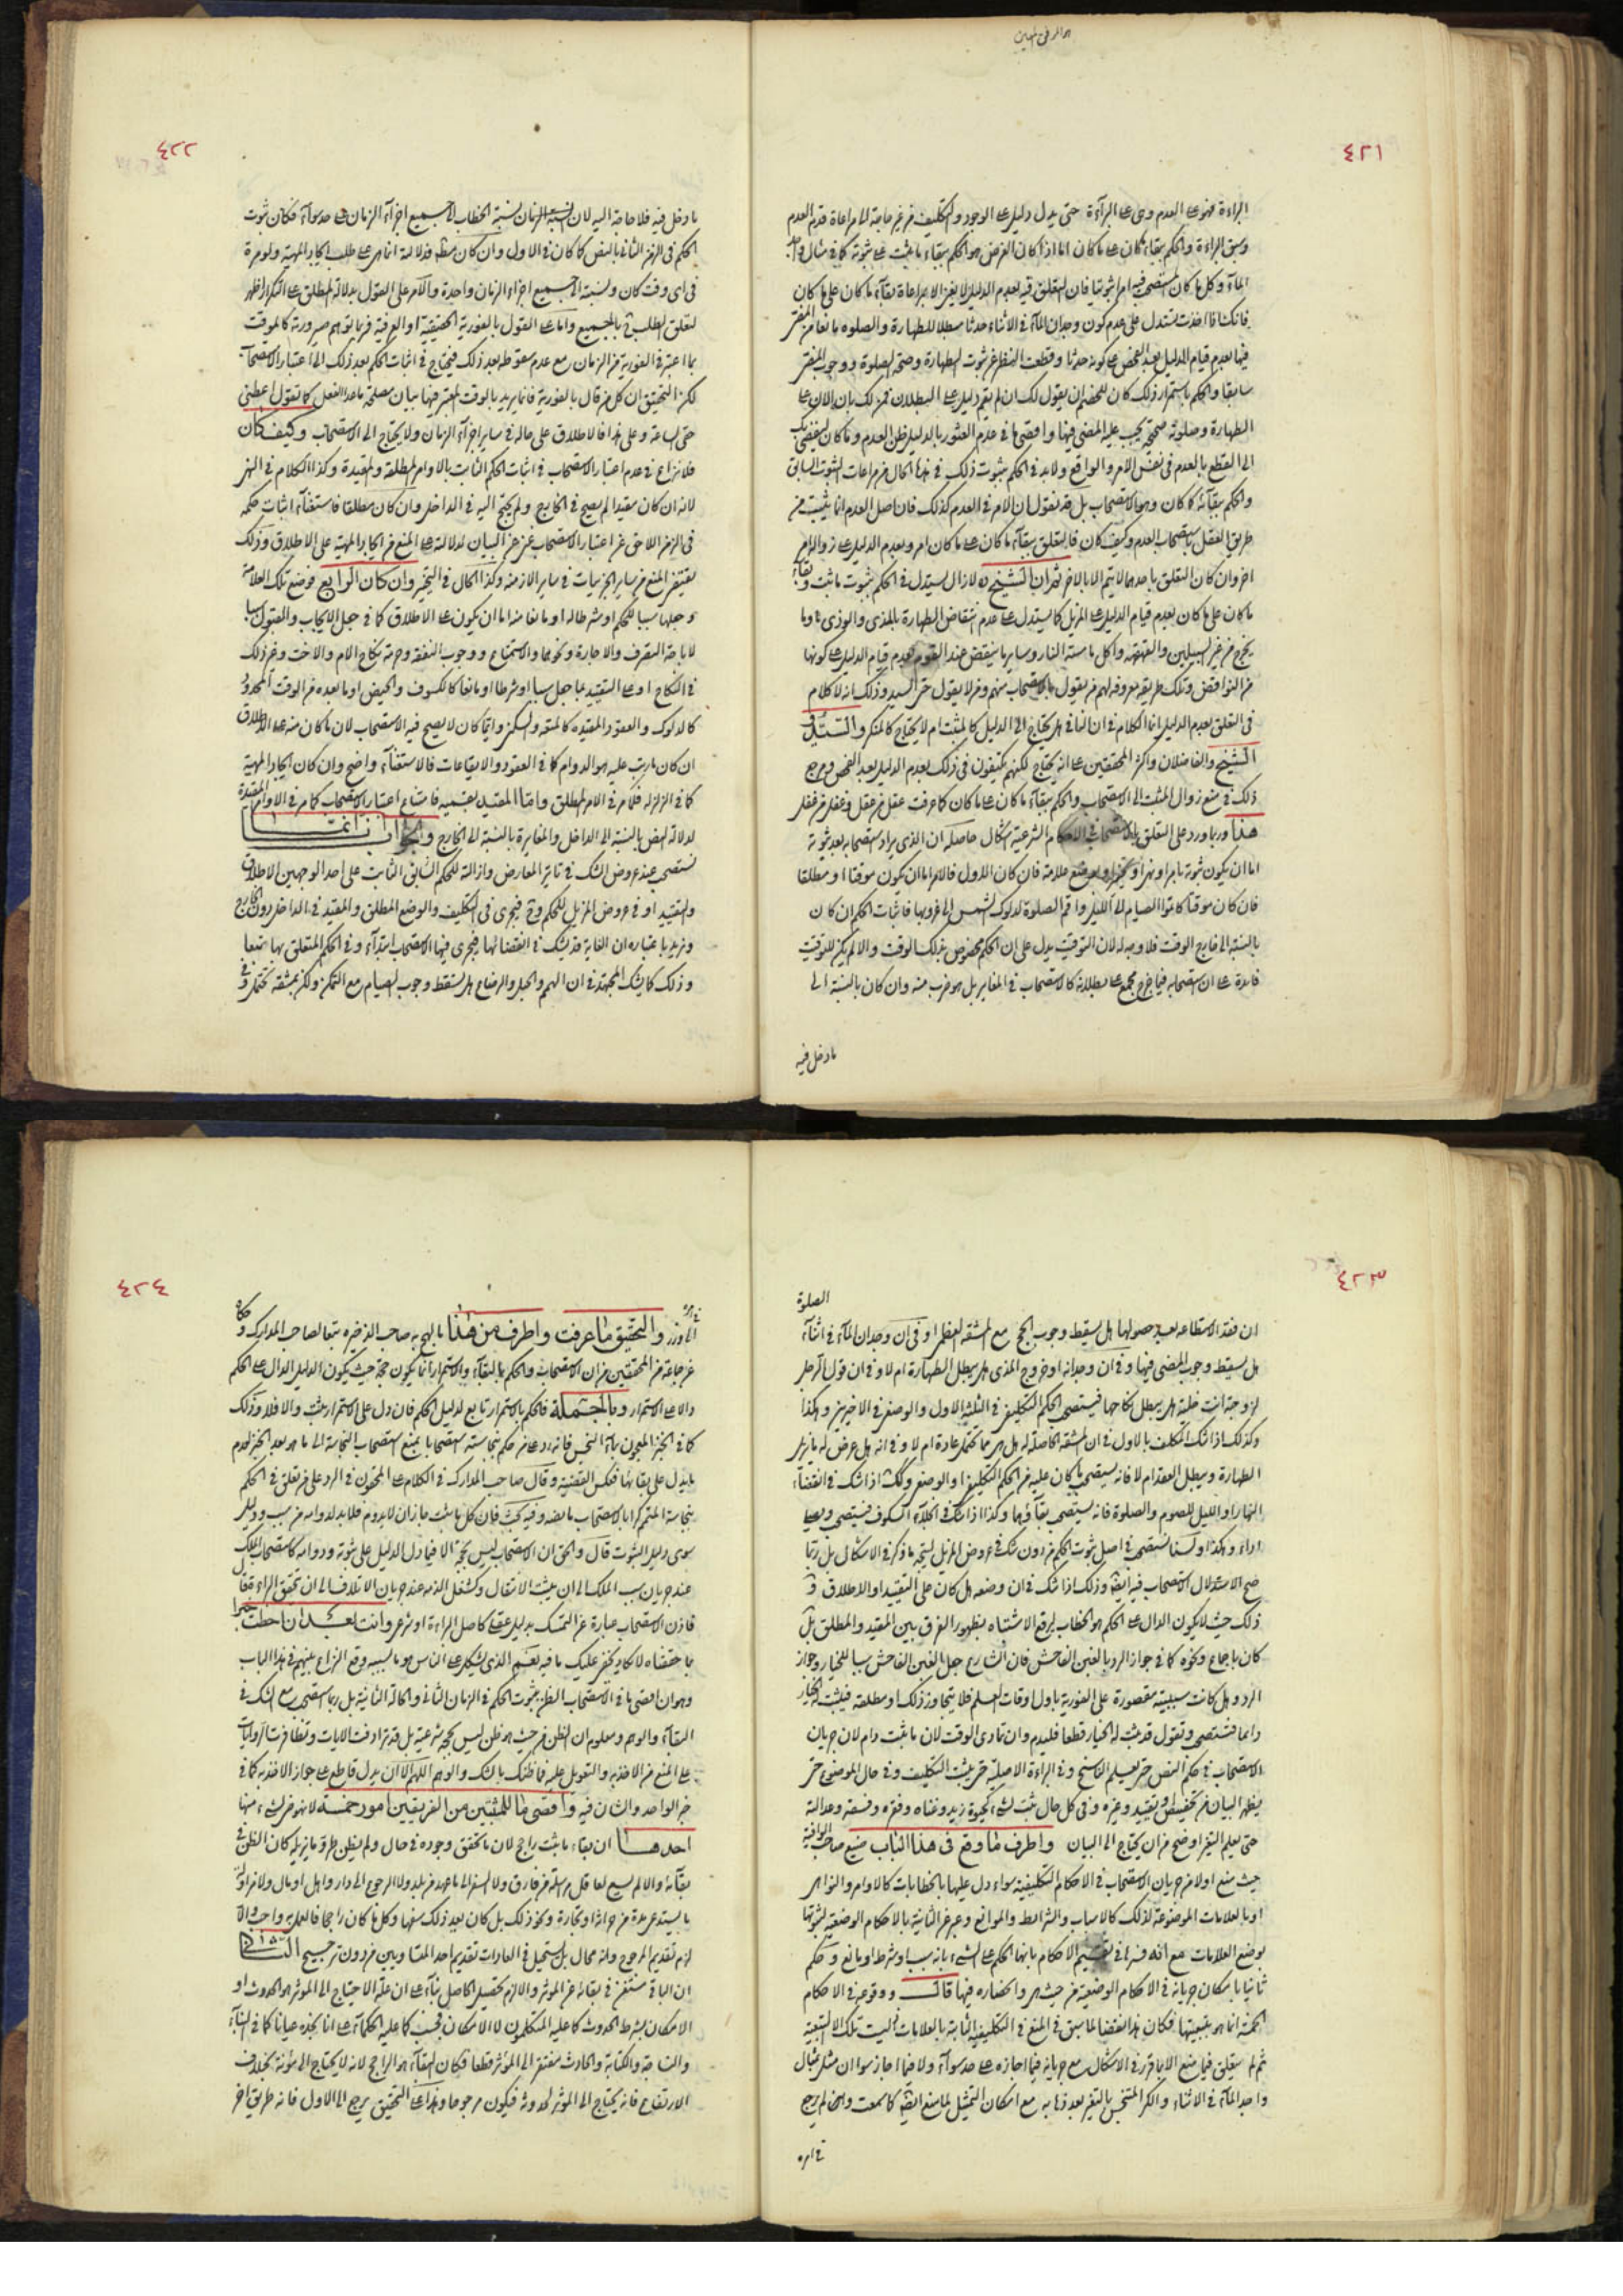 ٤٢١
البراءة فهو على العدم وهى على البرآءة حتى يدل دليل على الوجود والتكليف من غير حاجة الى مراعاة قدم العدم
وسبق البراءة والحكم ببقاء ما كان على ما كان اما اذا كان الغرض هو الحكم ببقاء ما ثبت على ثبوته كما فى مثال واجد
الماء وكل ما كان المستصحب فيه امرا ثبوتيا فان التعلق فيه بعدم الدليل لا يغنى الا بمراعاة بقاء ما كان على ما كان
فانك اذا اخذت تستدل على عدم كون وجدان الماء فى الاثناء حدثا مبطلا للطهارة والصلوة مانعا من
فيها بعدم قيام الدليل بعد الفحص على كونه حدثا وقطعت النظر عن ثبوت الطهارة وصحة الصلوة ووجوب
سابقا والحكم باستمرار ذلك كان للخصم ان يقول لك ان لم يقم دليل على البطلان فمن لك بان الان على
الطهارة وصلوته صحيحة يجب عليه المضى فيها واقصى ما فى عدم العثور بالدليل ظن العدم وما كان ليفضى بك
الى القطع بالعدم فى نفس الامر والواقع ولابد فى الحكم بثبوت ذلك فى هذا الحال من مراعات الثبوت السابق
والحكم ببقائه كما كان وهو الاستصحاب بل قد نقول ان الامر فى العدم كذلك فان اصل العدم انما يثبت من
طريق العقل باستصحاب العدم وكيف كان فالتعلق ببقاء ما كان على ما كان امر وبعدم الدليل على زواله امر
اخر وان كان التعلق باحدهما لا يتم الا بالاخر ثم ان الشيخ ره لا زال يستدل فى الحكم بثبوت ما ثبت وبقاء
ما كان على ما كان بعدم قيام الدليل على المزيل كما يستدل على عدم انتقاض الطهارة بالمذى والوذى وما
يخرج من غير السبيلين والقهقهة واكل ما مسته النار وساير ما ينتقض عند القوم بعدم قيام الدليل على كونها
من النواقض وتلك طريقة معروفة لهم من يقول بالاستصحاب منهم ومن لا يقول حتى السيد وذلك انه لا كلام
فى التعلق بعدم الدليل انما الكلام فى ان النافى هل يحتاج الى الدليل كالمثبت ام لا يحتاج كالمنكر والسيد و
الشيخ والفاضلان واكثر المحققين على انه يحتاج لكنهم يكتفون فى ذلك بعدم الدليل بعد الفحص ومرجع
ذلك فى منع زوال المثبت الى الاستصحاب والحكم ببقاء ما كان على ما كان كما عرفت عقل من عقل وغفل من غفل
هذا وربما ورد على التعلق بالاستصحاب فى الاحكام الشرعية اشكال حاصله ان الذى يراد استصحابه بعد ثبوته
اما ان يكون ثبوته بامر او نهى او تخيير او بوضع علامة فان كان الاول فالامر اما ان يكون موقتا او مطلقا
فان كان موقتا كاتموا الصيام الى الليل واقم الصلوة لدلوك الشمس الى غروبها فاثبات الحكم ان كان
بالنسبة الى خارج الوقت فلا وجه له لان التوقيت يدل على ان الحكم مخصوص بذلك الوقت والا لم يكن للتوقيت
فائدة على ان استصحابه فيما خرج مجمع على بطلانه كالاستصحاب فى المغاير بل هو ضرب منه وان كان بالنسبة الى
ما دخل فيه
٤٢٢
ما دخل فيه فلا حاجة اليه لان نسبة الزمان نسبة الخطاب الى جميع اجزاء الزمان على حد سواء فكان ثبوت
الحكم فى الزمن الثانى بالنص كما كان فى الاول وان كان مطلقا فدلالته انما هى على طلب ايجاد المهية ولو مرة
فى اى وقت كان ونسبته الى جميع اجزاء الزمان واحدة والامر على القول بدلالة المطلق على التكرار اظهر
لتعلق الطلب ح بالجميع واما على القول بالفورية الحقيقية او العرفية فربما توهم صيرورته كالموقت
بما اعتبر فى الفورية من الزمان مع عدم سقوطه بعد ذلك فيحتاج فى اثبات الحكم بعد ذلك الى اعتبار الاستصحاب
لكن التحقيق ان كل من قال بالفورية فانما يريد بالوقت المعتبر فيها بيان مصلحة ما عدا الفعل كما تقول اعطنى
حقى الساعة وعلى هذا فالاطلاق على حاله فى ساير اجزاء الزمان ولا يحتاج الى الاستصحاب وكيف كان
فلا نزاع فى عدم اعتبار الاستصحاب فى اثبات الحكم الثابت بالاوامر المطلقة والمقيدة وكذا الكلام فى النهى
لانه ان كان مقيدا لم يصح فى الخارج ولم يحتج اليه فى الداخل وان كان مطلقا فاستغناء اثبات حكمه
فى الزمن اللاحق عن اعتبار الاستصحاب غنى عن البيان لدلالته على المنع من ايجاد المهية على الاطلاق وذلك
يقتضى المنع من ساير الجزئيات فى ساير الازمنة وكذا الحال فى التخيير وان كان الرابع فوضع تلك العلامة
وجعلها سببا للحكم او شرطا له او مانعا منه اما ان يكون على الاطلاق كما فى جعل الايجاب والقبول سببا
لاباحة التصرف والاجارة ونحوهما والاستمتاع ووجوب النفقة وحرمة نكاح الام والاخت وغير ذلك
فى النكاح او على التقييد بما جعل سببا او شرطا او مانعا كالكسوف والحيض او ما بعده من الوقت المحدود
كالدلوك والعقود المقيدة كالمتعة والسكنى وايا ما كان لا يصح فيه الاستصحاب لان ما كان منه على الاطلاق
ان كان ما رتب عليه هو الدوام كما فى العقود والايقاعات فالاستغناء واضح وان كان ايجاد المهية
كما فى الزلزلة فكما مر فى الامر المطلق واما المقيد بقسميه فامتناع اعتبار الاستصحاب كما مر فى الاوامر المقيدة
لدلالة النص بالنسبة الى الداخل والمغايرة بالنسبة الى الخارج والجواب انا انما
نستصحب عند عروض الشك فى تاثير المعارض وازالته للحكم السابق الثابت على احد الوجهين الاطلاق
والتقييد او فى عروض المزيل للحكم وح فيجرى فى التكليف والوضع المطلق والمقيد فى الداخل دون الخارج
ونريد باعتباره ان الغاية قد يشك فى انقضائها فيجرى فيها الاستصحاب ابتداء وفى الحكم المتعلق بها تبعا
وذلك كما يشك المجتهد فى ان الهم والحبل والرضاع هل يسقط وجوب الصيام مع التمكن ولكن بمشقة تحتمل وفى
٤٢٣
الصلوة
ان فقد الاستطاعة بعد حصولها هل يسقط وجوب الحج مع المشقة العظمى او فى ان وجدان الماء فى اثناء
هل يسقط وجوب المضى فيها وفى ان وجدانه او خروج المذى هل يبطل الطهارة ام لا وفى ان قول الرجل
لزوجته انت خلية هل يبطل نكاحها فيستصحب الحكم التكليفى فى الثلثة الاول والوضعى فى الاخيرين وهكذا
وكذلك اذا شك المكلف بالاول فى ان المشقة الحاصلة له هل هى مما تحتمل عادة ام لا وفى انه هل عرض له ما يزيل
الطهارة ويبطل العقد ام لا فانه يستصحب ما كان عليه من الحكم التكليفى او الوضعى وكك اذا شك فى انقضاء
النهار او الليل للصوم والصلوة فانه يستصحب بقاؤهما وكذا اذا شك فى انجلاء الكسوف فيستصحب ويصلى
اداء وهكذا ولسنا نستصحب فى اصل ثبوت الحكم من دون شك فى عروض المزيل ليتجه ما ذكر فى الاشكال بل ربما
صح الاستدلال بالاستصحاب فيه ايضا وذلك اذا شك فى ان وضعه هل كان على التقييد او الاطلاق و
ذلك حيث لا يكون الدال على الحكم هو الخطاب ليرفع الاشتباه بظهور الفرق بين المقيد والمطلق بل
كان باجماع ونحوه كما فى جواز الرد بالغبن الفاحش فان الشارع جعل الغبن الفاحش سببا للخيار وجواز
الرد وهل كانت سببيته مقصورة على الفورية باول اوقات العلم فلا يتجاوز ذلك او مطلقة فيثبت له الخيار
دائما فنستصحب ونقول قد ثبت له الخيار قطعا فليدم وان تمادى الوقت لان ما ثبت دام لان جريان
الاستصحاب فى حكم النص حتى يعلم الناسخ وفى البراءة الاصلية حتى يثبت التكليف وفى حال الموضوع حتى
يظهر البيان من تخصيص او تقييد وغيره وفى كل حال ثبت لشىء كحيوة زيد وغناه وفقره وفسقه وعدالته
حتى يعلم التغير اوضح من ان يحتاج الى البيان واطرف ما وقع فى هذا الباب صنيع صاحب الوافية
حيث منع اولا من جريان الاستصحاب فى الاحكام التكليفية سواء دل عليها بالخطابات كالاوامر والنواهى
او بالعلامات الموضوعة لذلك كالاسباب والشرائط والموانع وعبر عن الثانية بالاحكام الوضعية لثبوتها
بوضع العلامات مع انه فسرها فى تقسيم الاحكام بانها الحكم على الشىء بانه سبب او شرط او مانع وحكم
ثانيا بامكان جريانه فى الاحكام الوضعية من حيث هى وانحصاره فيها قال ووقوعه فى الاحكام
الخمسة انما هو بتبعيتها فكان هذا نقضا لما سبق فى المنع فى التكليفية الثابتة بالعلامات اليست تلك الا التبعية
ثم لم يتعلق فيما منع الا بما قرر فى الاشكال مع جريانه فيما اجازه على حد سواء ولا فيما اجاز سوى ان مثل بمثال
واجد الماء فى الاثناء والكر المتنجس بالتغير بعد ذهابه مع امكان التمثيل لما منع ايضا كما سمعت وان لم يرجع
٤٢٤
والتحقيق ما عرفت واطرف من هذا ما لهج به صاحب الذخيره تبعا لصاحب المدارك و حكاه
عن جماعة من المحققين من ان الاستصحاب والحكم بالبقاء والاستمرار انما يكون حجة حيث يكون الدليل الدال على الحكم
دالا على الاستمرار وبالجملة فالحكم بالاستمرار تابع لدليل الحكم فان دل على الاستمرار ثبت والا فلا وذلك
كما فى الخبز المعجون بالماء النجس فانه ادعى من حكم بنجاسته استصحابا يمنع استصحاب النجاسة الى ما بعد الخبز لعدم
ما يدل على بقائها فعكس القضية وقال صاحب المدارك فى الكلام على المحقون فى الرد على من تعلق فى الحكم
بنجاسة المتمم كرا بالاستصحاب ما لفظه وفيه بحث فان كل ما ثبت جاز ان لا يدوم فلابد لدوامه من سبب ودليل
سوى دليل الثبوت قال والحق ان الاستصحاب ليس بحجة الا فيما دل الدليل على ثبوته ودوامه كاستصحاب الملك
عند جريان سبب الملك الى ان يثبت الانتقال وكشغل الذمة عند جريان الاتلاف الى ان تحقق البراءة فقال
فاذن الاستصحاب عبارة عن التمسك بدليل عقلى كاصل البراءة او شرعى وانت بعد ان احطت خبرا
بما حققناه لا يكاد يخفى عليك ما فيه نعم الذى يشكل على الناس هو ما بسببه وقع النزاع بينهم فى هذا الباب
وهو ان اقصى ما فى الاستصحاب الظن بثبوت الحكم فى الزمان الثانى والحالة الثانية بل ربما استصحب مع الشك فى
البقاء والوهم ومعلوم ان الظن من حيث هو ظن ليس بحجة شرعية بل قد ترادفت الايات وتظافرت الروايات
على المنع من الاخذ به والتعويل عليه فما ظنك بالشك والوهم اللهم الا ان يدل قاطع على جواز الاخذ به كما فى
خبر الواحد والشان فيه واقصى ما للمثبتين من الفريقين امور خمسة لا نهوض لشىء منها
احدها ان بقاء ما ثبت راجح لان ما تحقق وجوده فى حال ولم يظن طرو ما يزيله كان الظن فى
بقائه والا لم يسع لعاقل مراسلة من فارق ولا السفر الى ما عهد من بلد ولا الرجوع الى دار واهل او مال ولا مزاولة
ما يستدعى مدة من حراثة او تجارة ونحو ذلك بل كان بعد ذلك سفها وكل ما كان راجحا فالعمل به واجب والا
لزم تقديم المرجوح وانه محال بل يستحيل فى العادات تقديم احد المتساويين من دون ترجيح الثانى
ان الباقى مستغن فى بقائه عن المؤثر والا لزم تحصيل الحاصل بناء على ان علة الاحتياج الى المؤثر هو الحدوث او
الامكان بشرط الحدوث كما عليه المتكلمون لا الامكان فحسب كما عليه الحكماء على انا نجده عيانا كما فى البناء
والنساجة والكتابة والحادث مفتقر الى المؤثر قطعا فكان البقاء هو الراجح لانه لا يحتاج الى مؤنة بخلاف
الارتفاع فانه يحتاج الى المؤثر لحدوثه فيكون مرجوحا وهذا على التحقيق يرجع الى الاول فانه طريق اخر